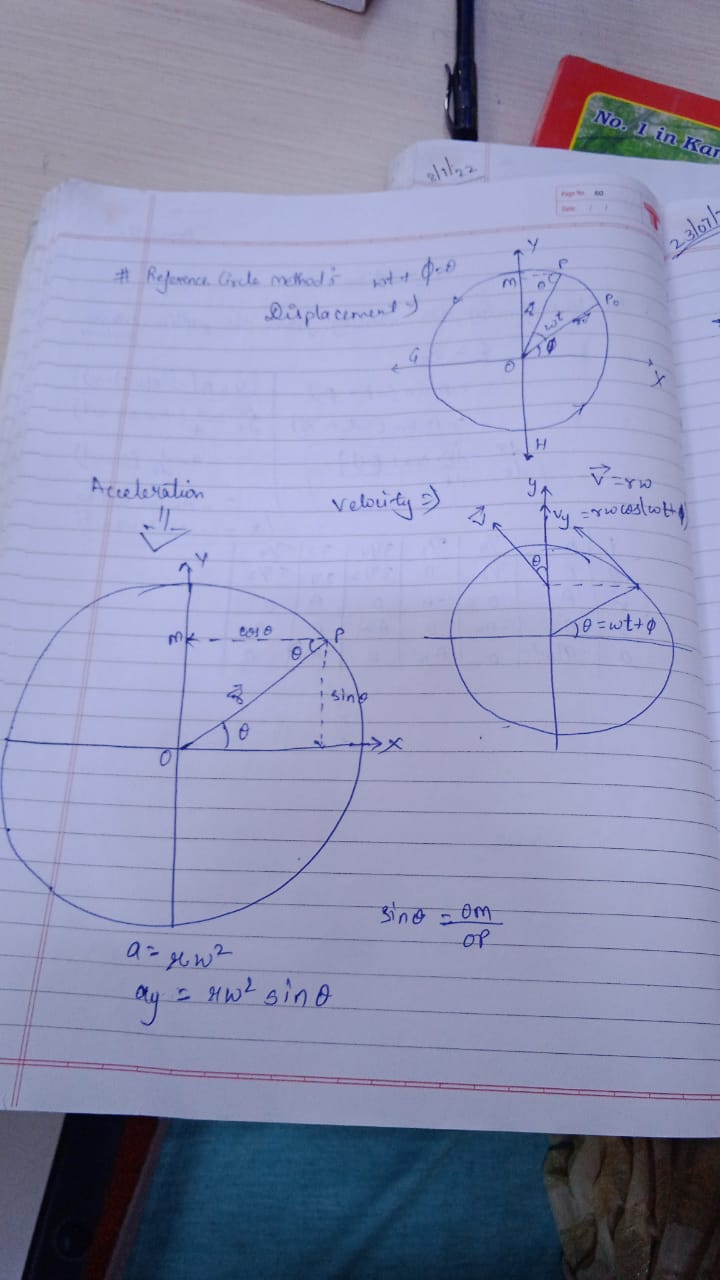 No. 1 in Kar
8/7/22
Page No. 60
Date: / /
23/07/
# Reference Circle method's wt + ϕ = θ
Displacement
Y
M
P
P₀
wt
ϕ
G
O
X
H
Acceleration
Velocity ⇒
y
V⃗ = rw
Vy = rw cos(wt + ϕ)
θ
θ = wt + ϕ
Y
M
cos θ
P
θ
sin θ
θ
O
X
sin θ = OM
OP
a = rw²
ay = rw² sin θ